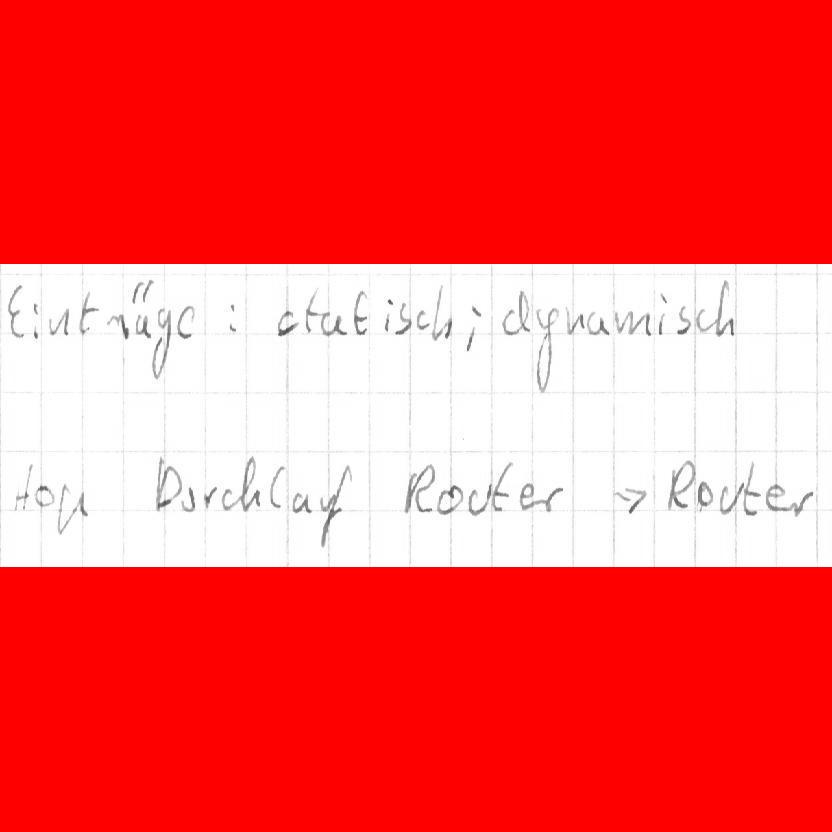 Einträge : statisch; dynamisch
Hop Durchlauf Router → Router